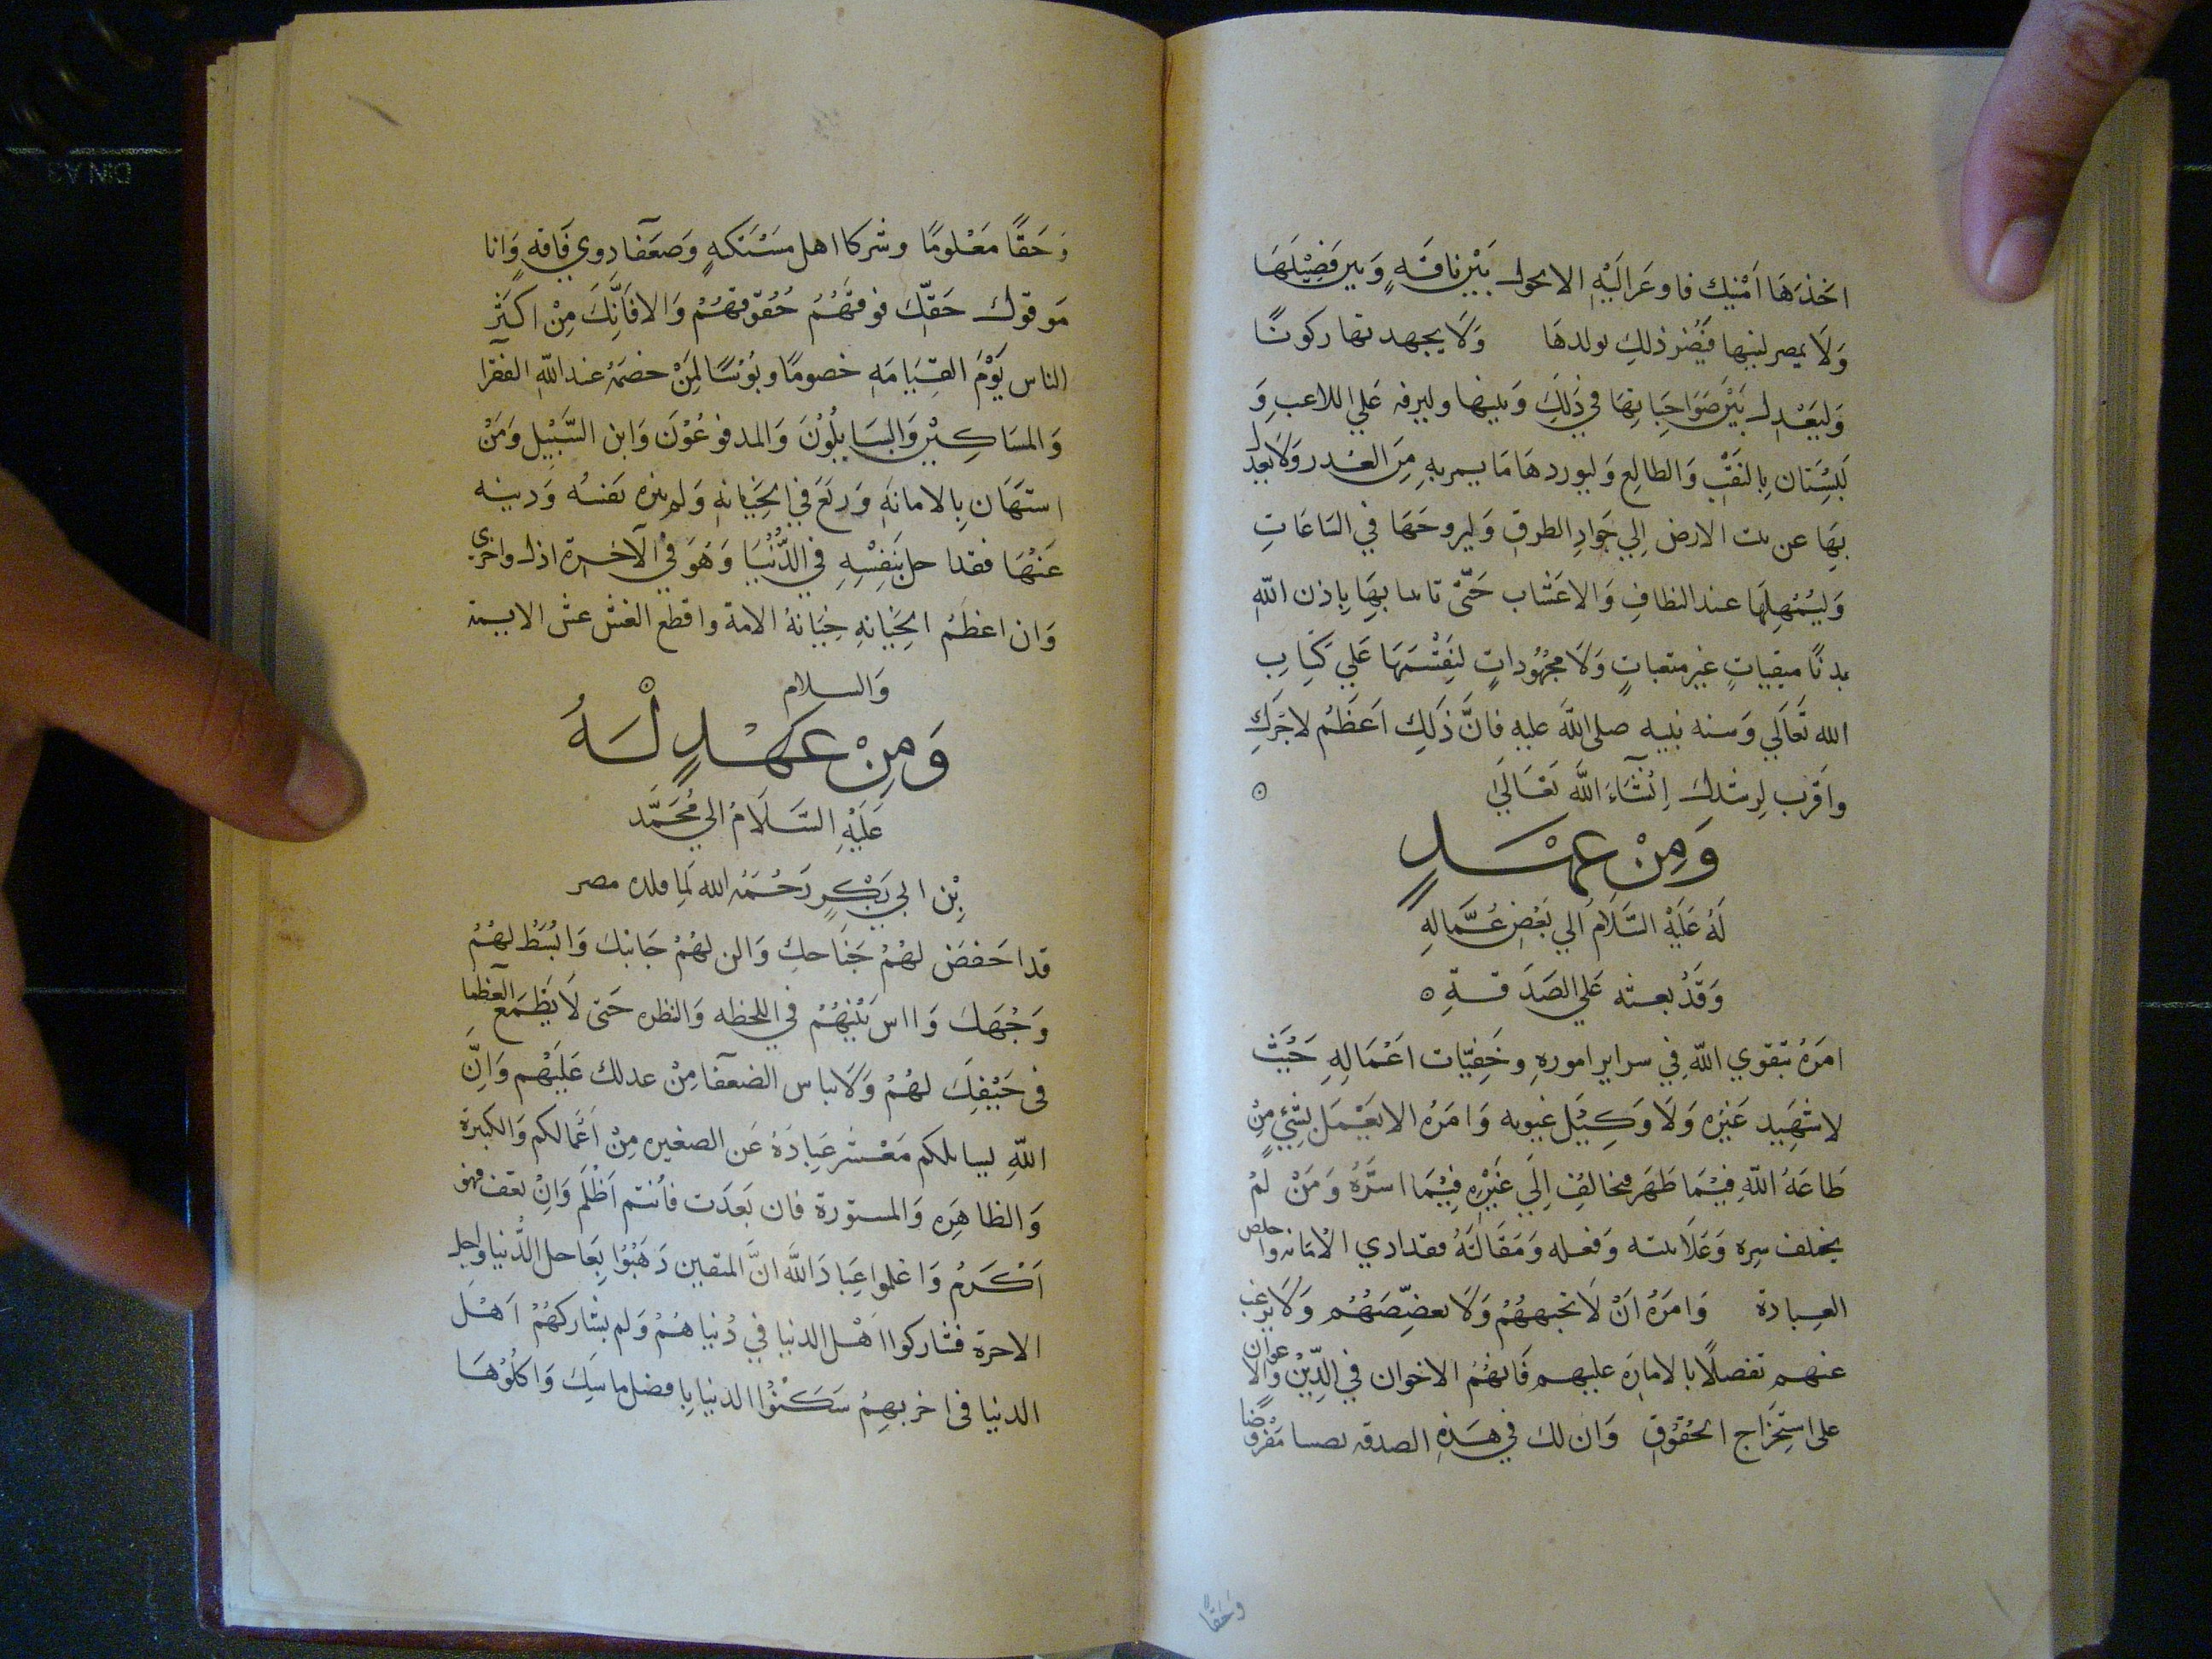 اخذها اَمْنيك فاوعَز اليْهِ الا يحول بَيْن ناقَةٍ وَبين فَصِيْلَهَا
وَلَا يمصر لبنها فَيُضر ذلِكِ بولدهَا وَلَا يجهدنها ركوبًا
وَليَعْدِل بَيْنَ صَوَاحِبَاتِهَا في ذَلِكَ وَبينها وليرفه عَلي اللاعبِ وَ
لْيَسْتَان بِالنقَبِ وَالظالِع وَليوردهَا مَا يمر بهِ مِنَ الغدر وَلَا يعدل
بهَا عن نبت الارض اِلي جَوادِ الطرقِ وَليروحَهَا في السَاعَاتِ
وَليُمْهِلهَا عند النطافِ وَالاعَشاب حَتّىٰ تاتنا بهَا بِاذن اللهِ
بدنًا منقياتٍ غير متعباتٍ وَلَا مجهُوداتٍ لنقْسَمَهَا عَلي كتابِ
الله تَعَالَي وَسنه نبيه صلى اللهَ عليه فانَّ ذَلكِ اَعَظَمُ لاجرَكِ
وَاقرب لِرشدك اِنْشَآءَ اللهَ تَعَالَىٰ
وَمِنْ عهْدٍ
لَهُ عَلَيْهِ السَّلَام اَلي بَعْض عُمَّالِهِ
وَقَدْ بعثه عَلي الصَدَقةِ
امَرهُ بتقوي اللهِ في سراير امورهِ وخَفِيّات اعْمَالِهِ حَيْث
لا شهِيد غَيْره وَلَا وَكِيْل غيره وَامَرهُ الا يعْمَل بشيءٍ مِنْ
طَاعَهِ اللهِ فيْمَا ظَهَر فيخالف اِلَي غَيْرِهِ فِيْمَا اسَرَّهُ وَمَنْ لمْ
يختلف سره وَعَلَانيته وَفعله وَمَقَالتَهُ فقد ادي الامَانه واخلص
العِبادة وَامَرَهُ اَنْ لَا يجبههُمْ وَلَا يعضَهَهُم وَلَا يرغب
عنهم تفضلًا بالامارَهِ عليهم فَانهُمْ الاخوان في الدّيْن وَالاعوان
على استِخْرَاج الحُقُوْق وَان لكَ في هَذِهِ الصدقه نصيبا مَفْروضًا
وَحَقًّا
وَحَقًّا مَعْلومًا وشركا اهل مسْكَنَهٍ وَضعَفآ دوي فَاقهٍ وَانا
مَوفوك حَقّكَ فوفهُمْ حُقوقهُمْ وَالا فَاَنَّكَ مِنْ اكثر
الناس يَوْمَ القِيَامَه خصومًا وبُوْسًا لِمَنْ خصمهُ عند اللهِ الفقرآ
وَالمسَاكِيْن وَالسَايلُوْنَ وَالمدفوعُوْنَ وَابن السَّبِيْلِ وَمَنْ
استَهَان بِالامانهِ وَرتَعَ في الخِيَانهِ وَلم ينزه نفسُه وَدينه
عَنْهَا فقد احل بَنفِسْهِ في الدُّنْيَا وَهُوَ في الآخرة اذل واخزي
وَان اعظَمُ الخِيَانهِ خِيَانهُ الامة واقطع الغش غش الايمة
وَالسلام
وَمِنْ عَهْدٍ لَهُ
عَلَيْهِ السَّلَامُ الي مُحَمَّد
بْن ابي بَكْرٍ رَحْمَهُ الله لمَا قلده مصر
قد اخفض لهُمْ جَنَاحكِ وَالن لهُمْ جَانبكَ وَابْسُطْ لهُمْ
وَجْهَكَ وَااس بَيْنَهُمْ في اللحظه وَالنظره حَتى لَا يَطْمَعَ العظمآ
فى حَيْفِكَ لهُمْ وَلَا يياس الضعفآ مِنْ عدلك عَلَيْهم وَاِنَّ
اللهِ ليسايلكم مَعْشَر عَبِادَهُ عَن الصغيره مِنْ اَعْمَالكم وَالكبيرة
وَالظاهِرَه وَالمستورة فان يعَذِب فاَنتم اَظْلم وَاِنْ يعف فهو
اَكْرَمُ وَاعلموا عِبَادَ اللهَ انَّ المتقين ذَهَبُوْا بِعَاجل الدُّنيا واجل
الاخرة فشاركوا اَهْل الدنيا في دُنيَاهُمْ وَلم يشاركهُمْ اَهْل
الدنيا فى اخرتهِمْ سَكَنُوْا الدنيا بِافضل ما سكنت وَاكلُوْهَا